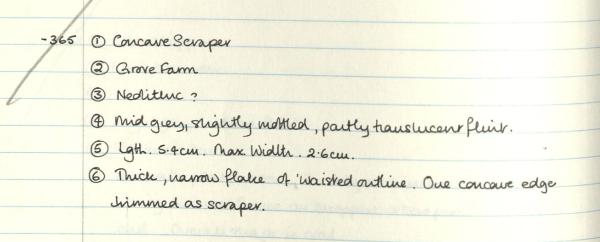 -365 ① Concave Scraper
② Grove Farm
③ Neolithic ?
④ Mid grey, slightly mottled, partly translucent flint.
⑤ Lgth. 5.4cm. Max. Width. 2.6cm.
⑥ Thick, narrow flake of 'waisted outline. One concave edge
trimmed as scraper.